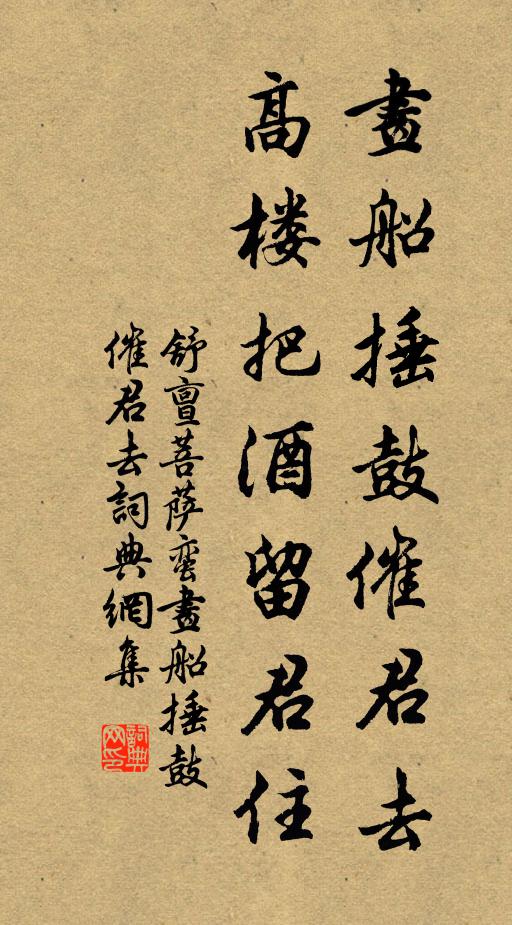 畫船捶鼓催君去
高楼把酒留君住
舒亶菩萨蛮畫船捶鼓
催君去詞典網集
詞典
网印